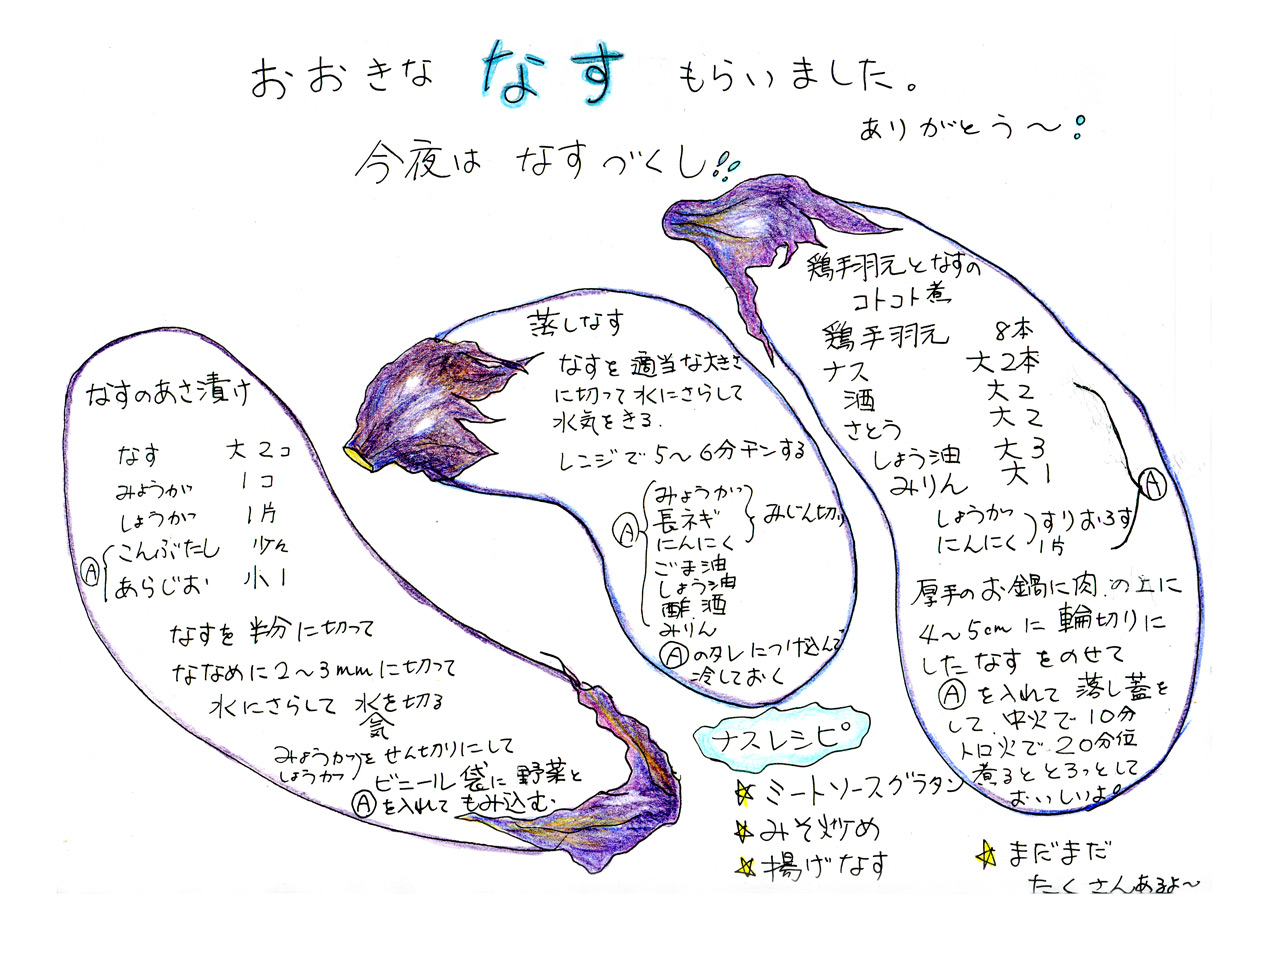 おおきな なす もらいました。
ありがとう〜!
今夜は なすづくし!!
なすのあさ漬け
なす 大2コ
みょうが 1コ
しょうが 1片
Ⓐ こんぶだし 少々
あらじお 小1
なすを 半分に切って
ななめに2〜3mmに切って
水にさらして 水気を切る
みょうが しょうが を せん切りにして
ビニール袋に 野菜と
Ⓐを入れて もみ込む
蒸しなす
なすを 適当な大きさ
に切って 水にさらして
水気をきる.
レンジで5〜6分チンする
Ⓐ みょうが
長ネギ
にんにく みじん切り
ごま油
しょう油
酢 酒
みりん
Ⓐのタレにつけ込んで
冷しておく
鶏手羽元となすの
コトコト煮
鶏手羽元 8本
ナス 大2本
酒 大2
さとう 大2
しょう油 大3
みりん 大1
Ⓐ
しょうが すりおろす
にんにく 1片
厚手のお鍋に肉の上に
4〜5cmに輪切りに
したなすをのせて
Ⓐを入れて 落し蓋を
して、中火で10分
トロ火で20分位
煮るととろっとして
おいしいよ!
ナスレシピ
☆ミートソースグラタン
☆みそ炒め
☆揚げなす
☆まだまだ
たくさんあるよ〜